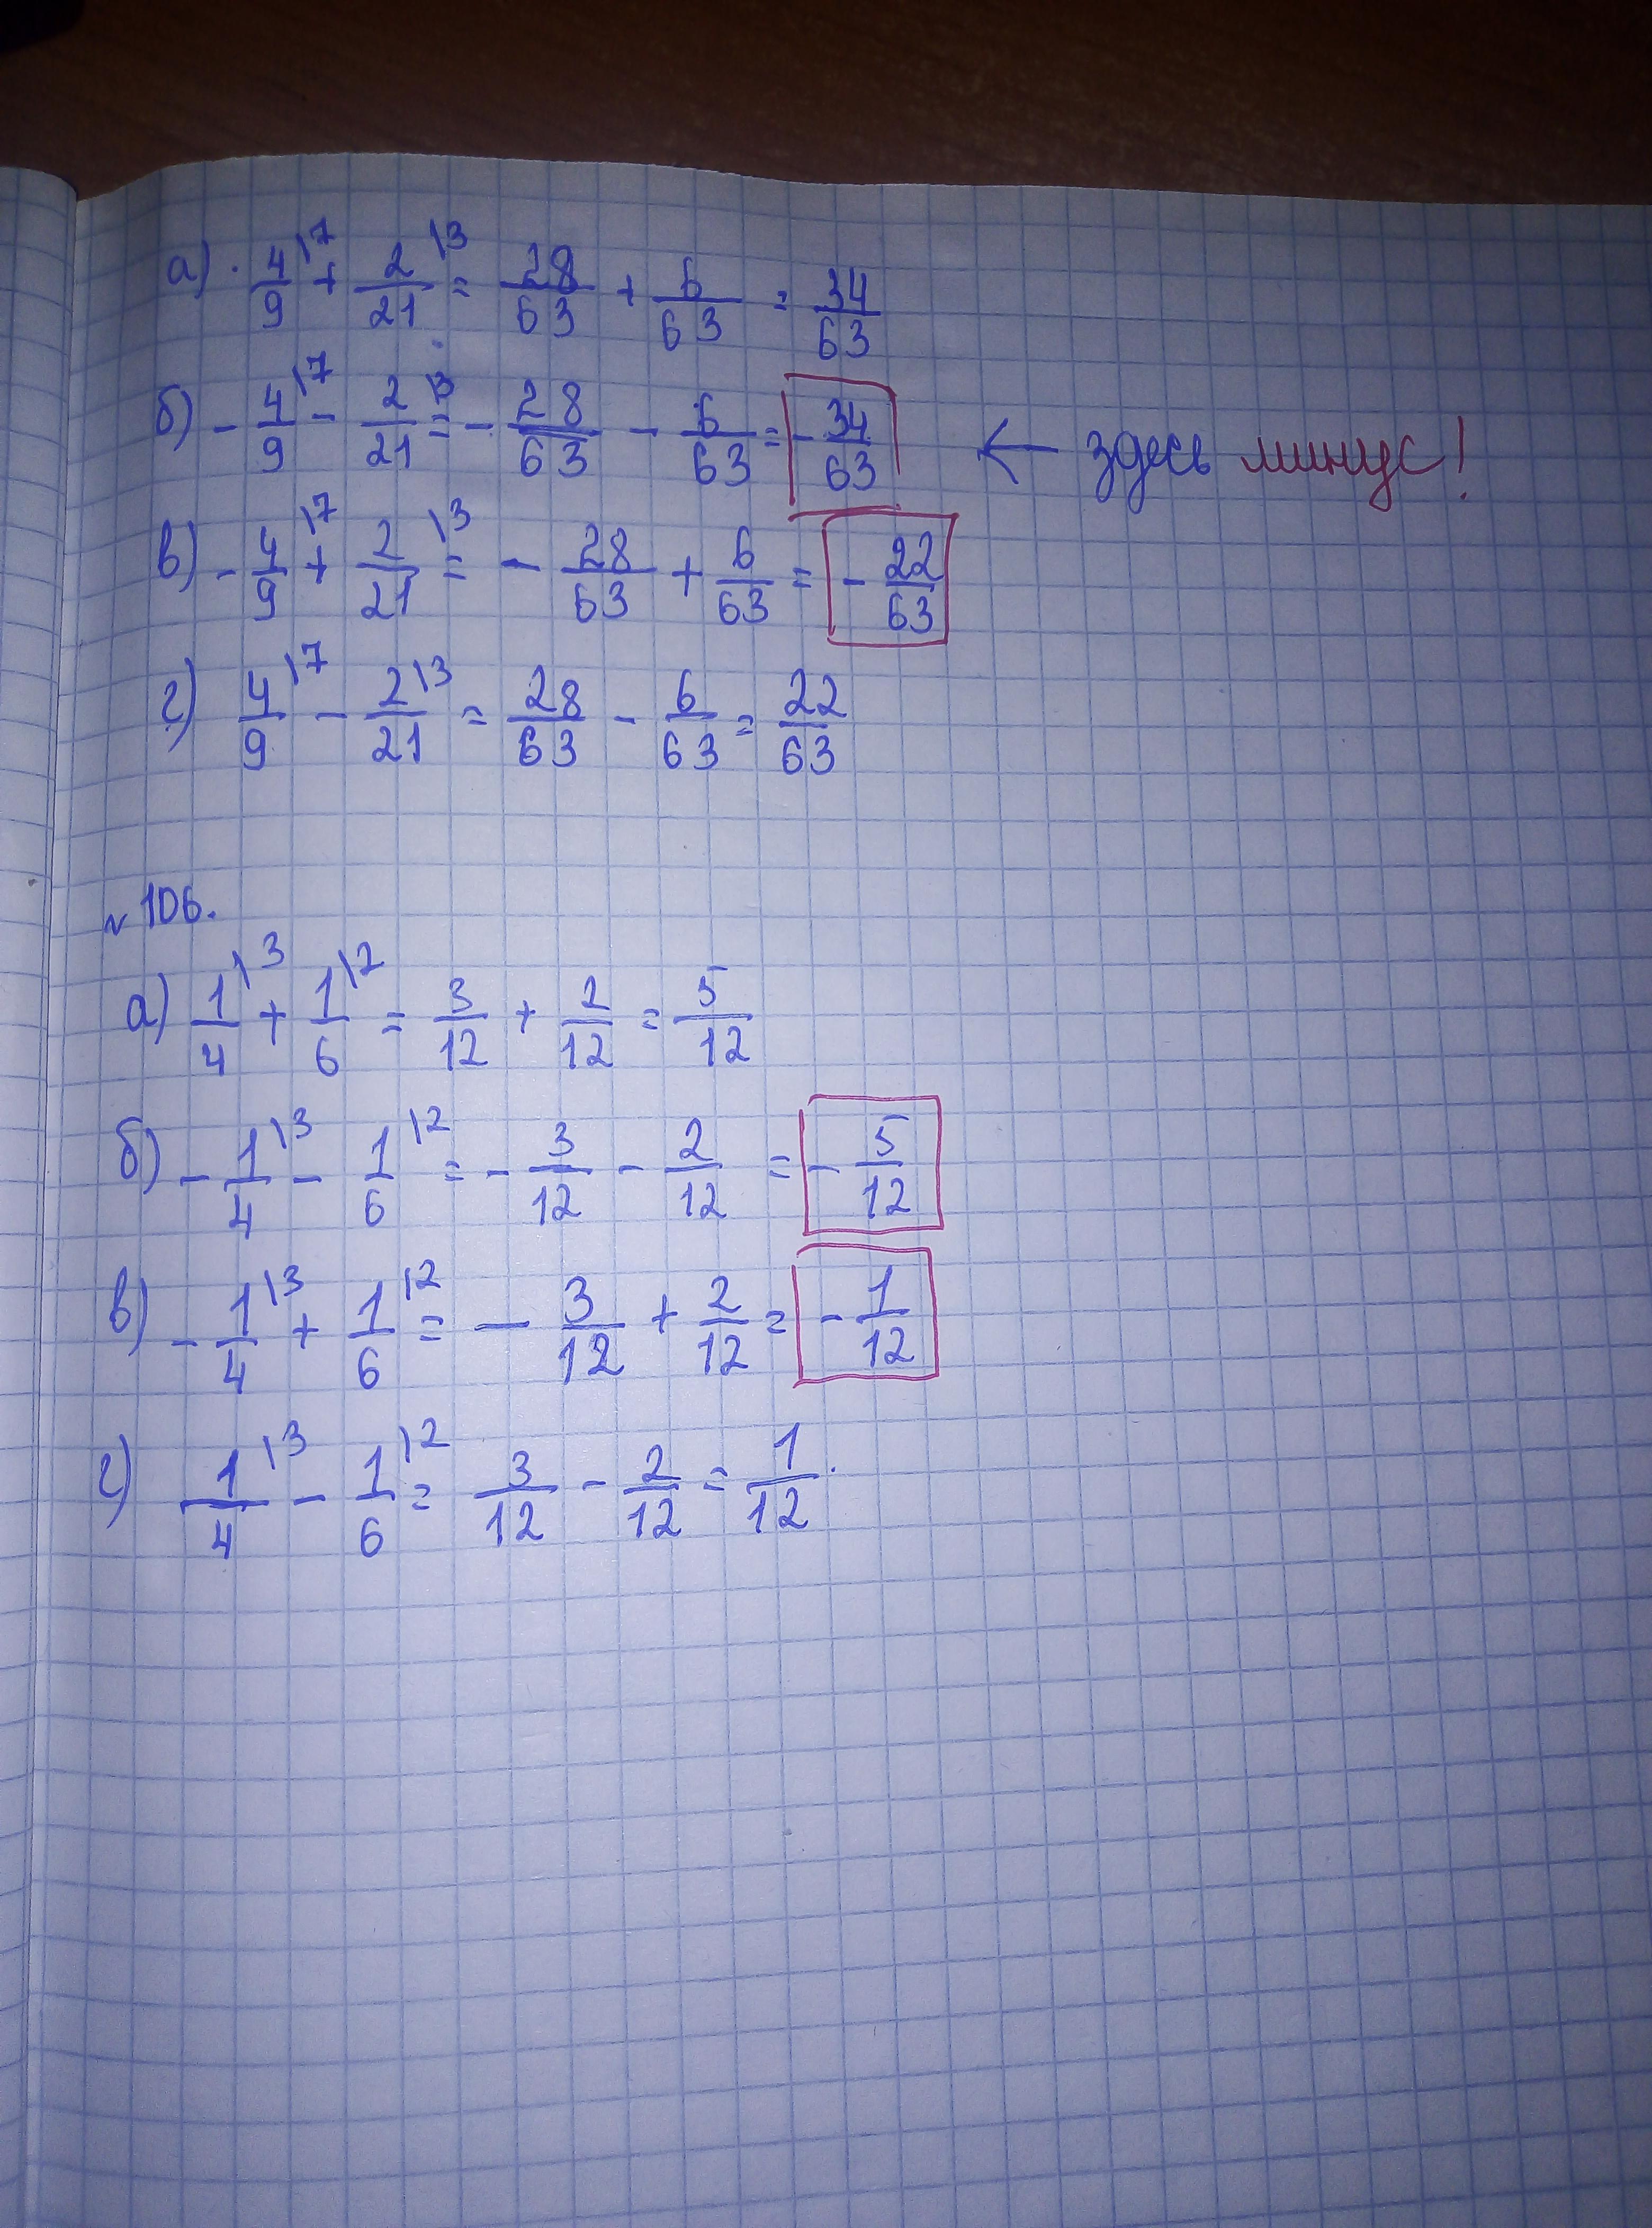 а) 4/9\7 + 2/21\3 = 28/63 + 6/63 = 34/63
б) - 4/9\7 - 2/21\3 = - 28/63 - 6/63 = - 34/63 ← здесь минус!
в) - 4/9\7 + 2/21\3 = - 28/63 + 6/63 = - 22/63
г) 4/9\7 - 2/21\3 = 28/63 - 6/63 = 22/63
№ 106.
а) 1/4\3 + 1/6\2 = 3/12 + 2/12 = 5/12
б) - 1/4\3 - 1/6\2 = - 3/12 - 2/12 = - 5/12
в) - 1/4\3 + 1/6\2 = - 3/12 + 2/12 = - 1/12
г) 1/4\3 - 1/6\2 = 3/12 - 2/12 = 1/12.